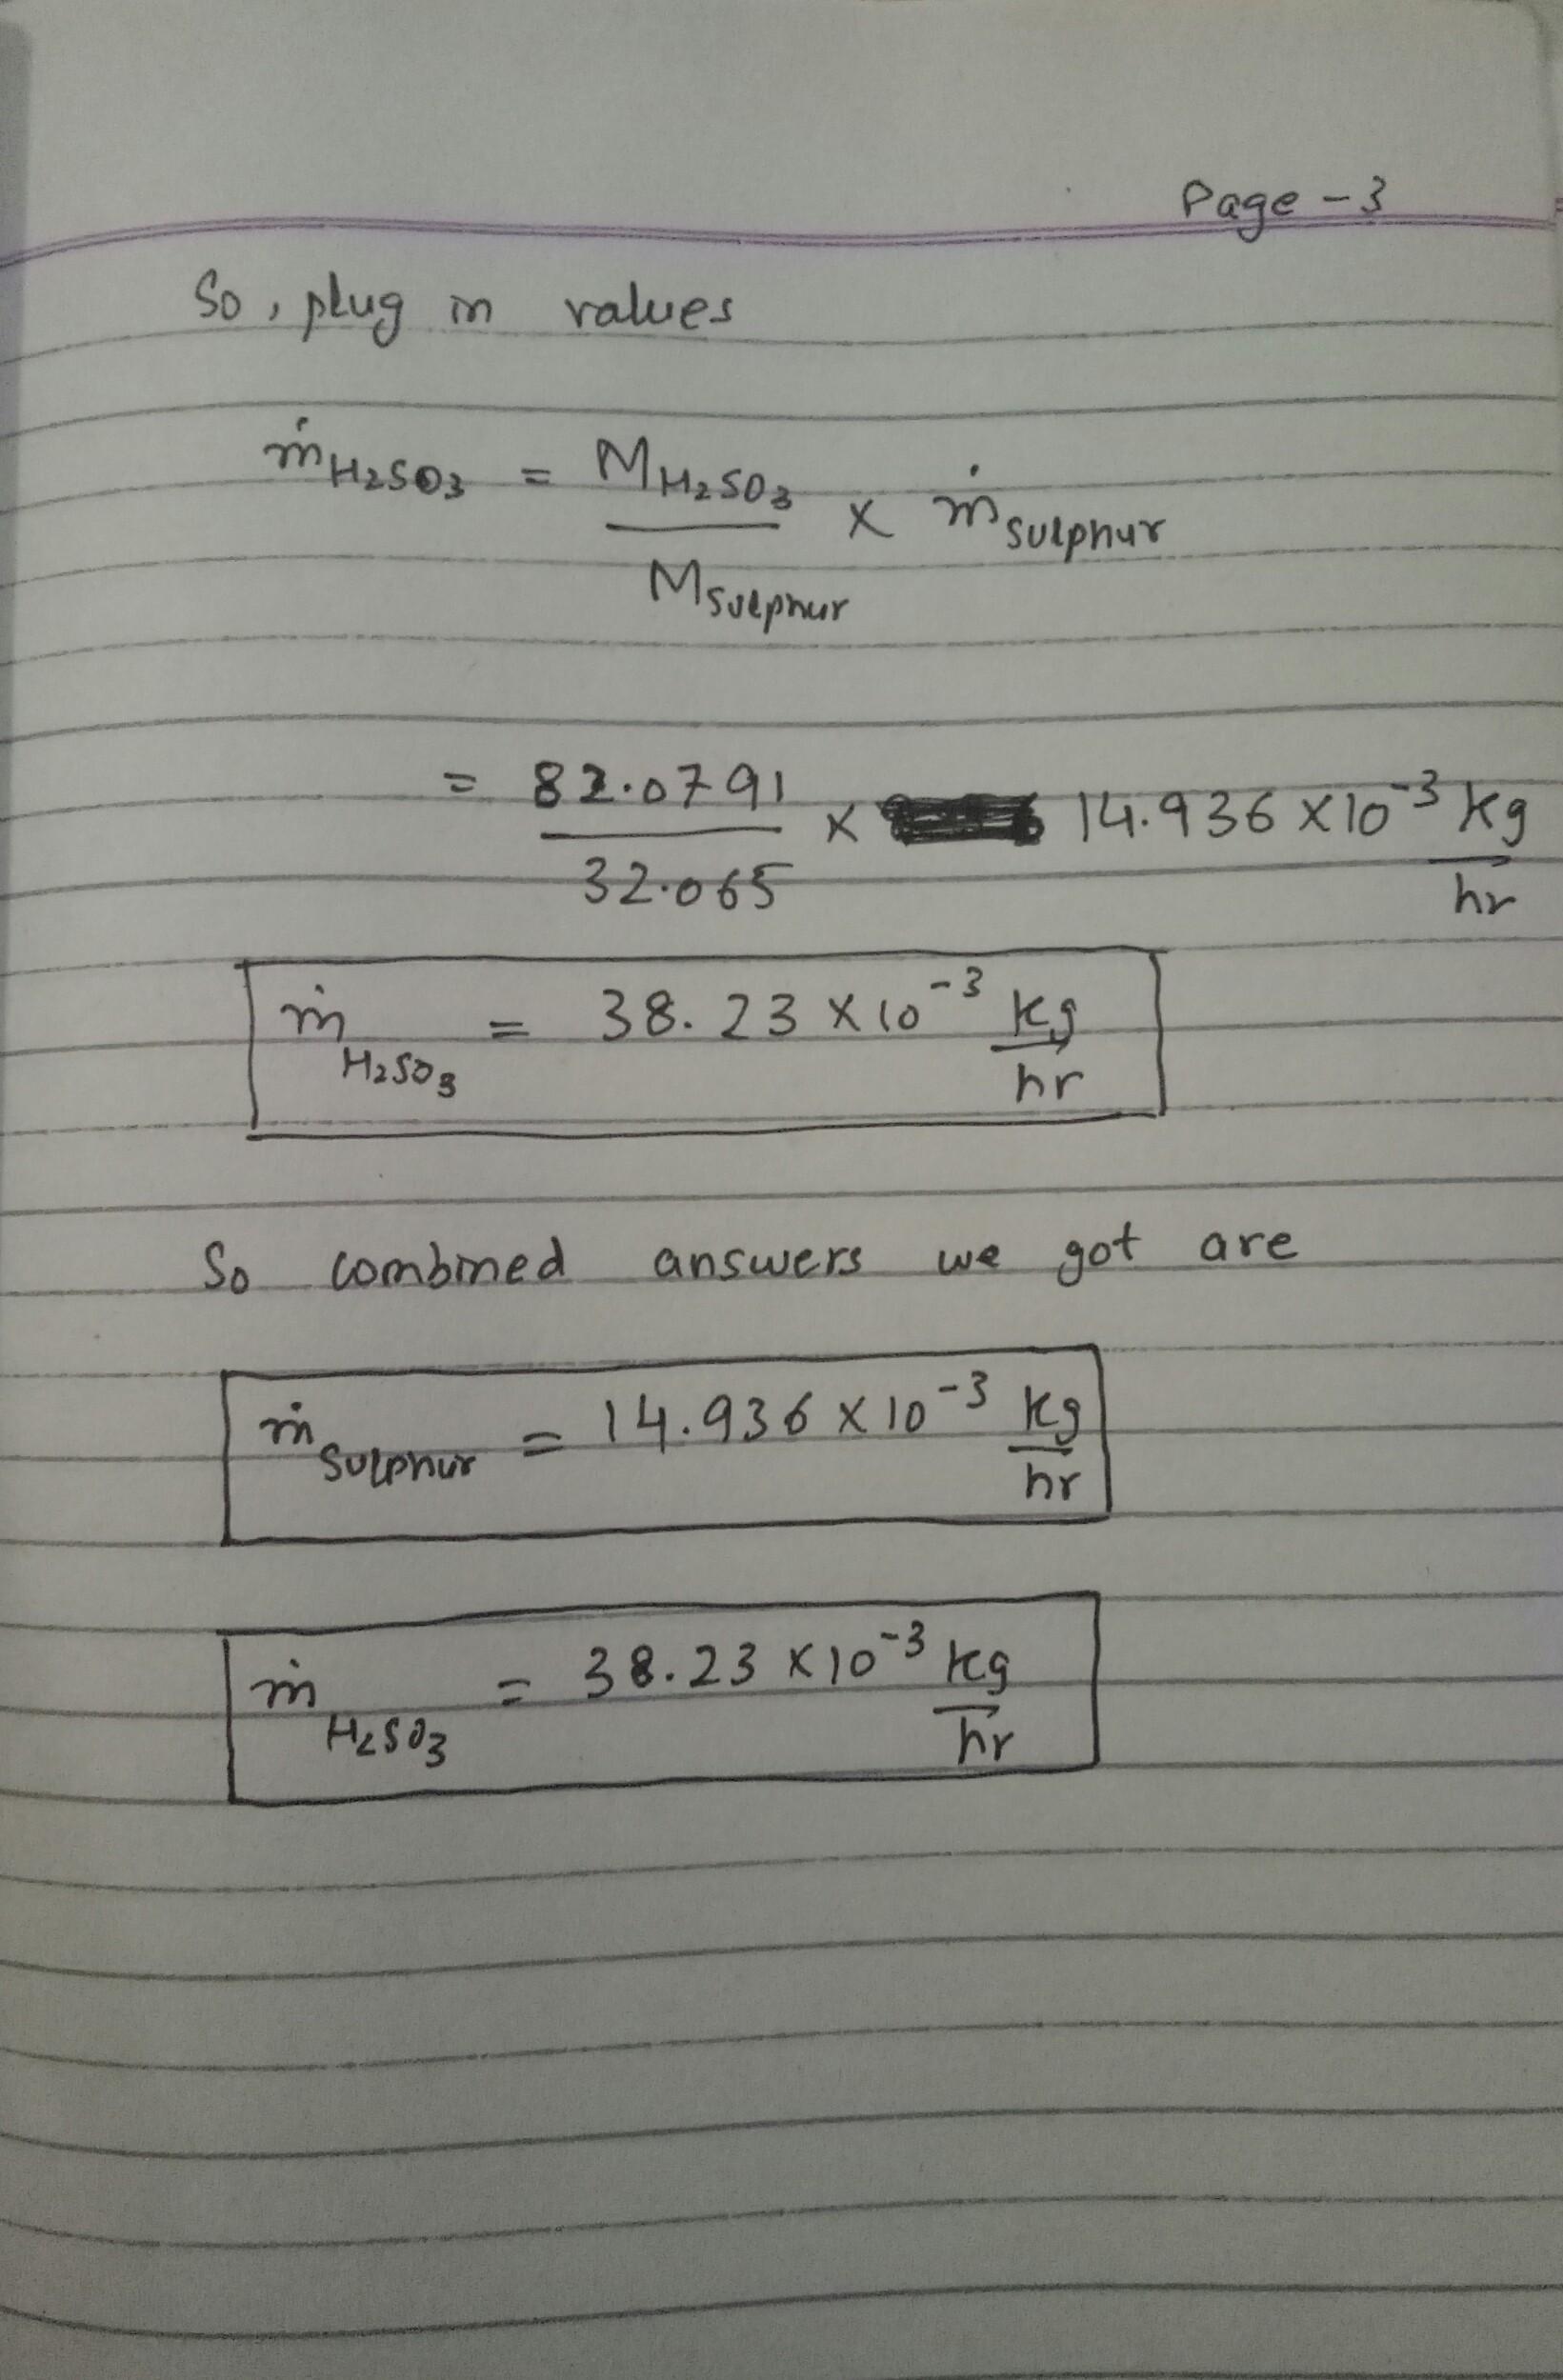 Page - 3
So, plug in values
ṁ H₂SO₃ = M H₂SO₃ / M sulphur × ṁ sulphur
= 82.0791 / 32.065 × 14.936 × 10⁻³ kg / hr
ṁ H₂SO₃ = 38.23 × 10⁻³ kg / hr
So combined answers we got are
ṁ sulphur = 14.936 × 10⁻³ kg / hr
ṁ H₂SO₃ = 38.23 × 10⁻³ kg / hr